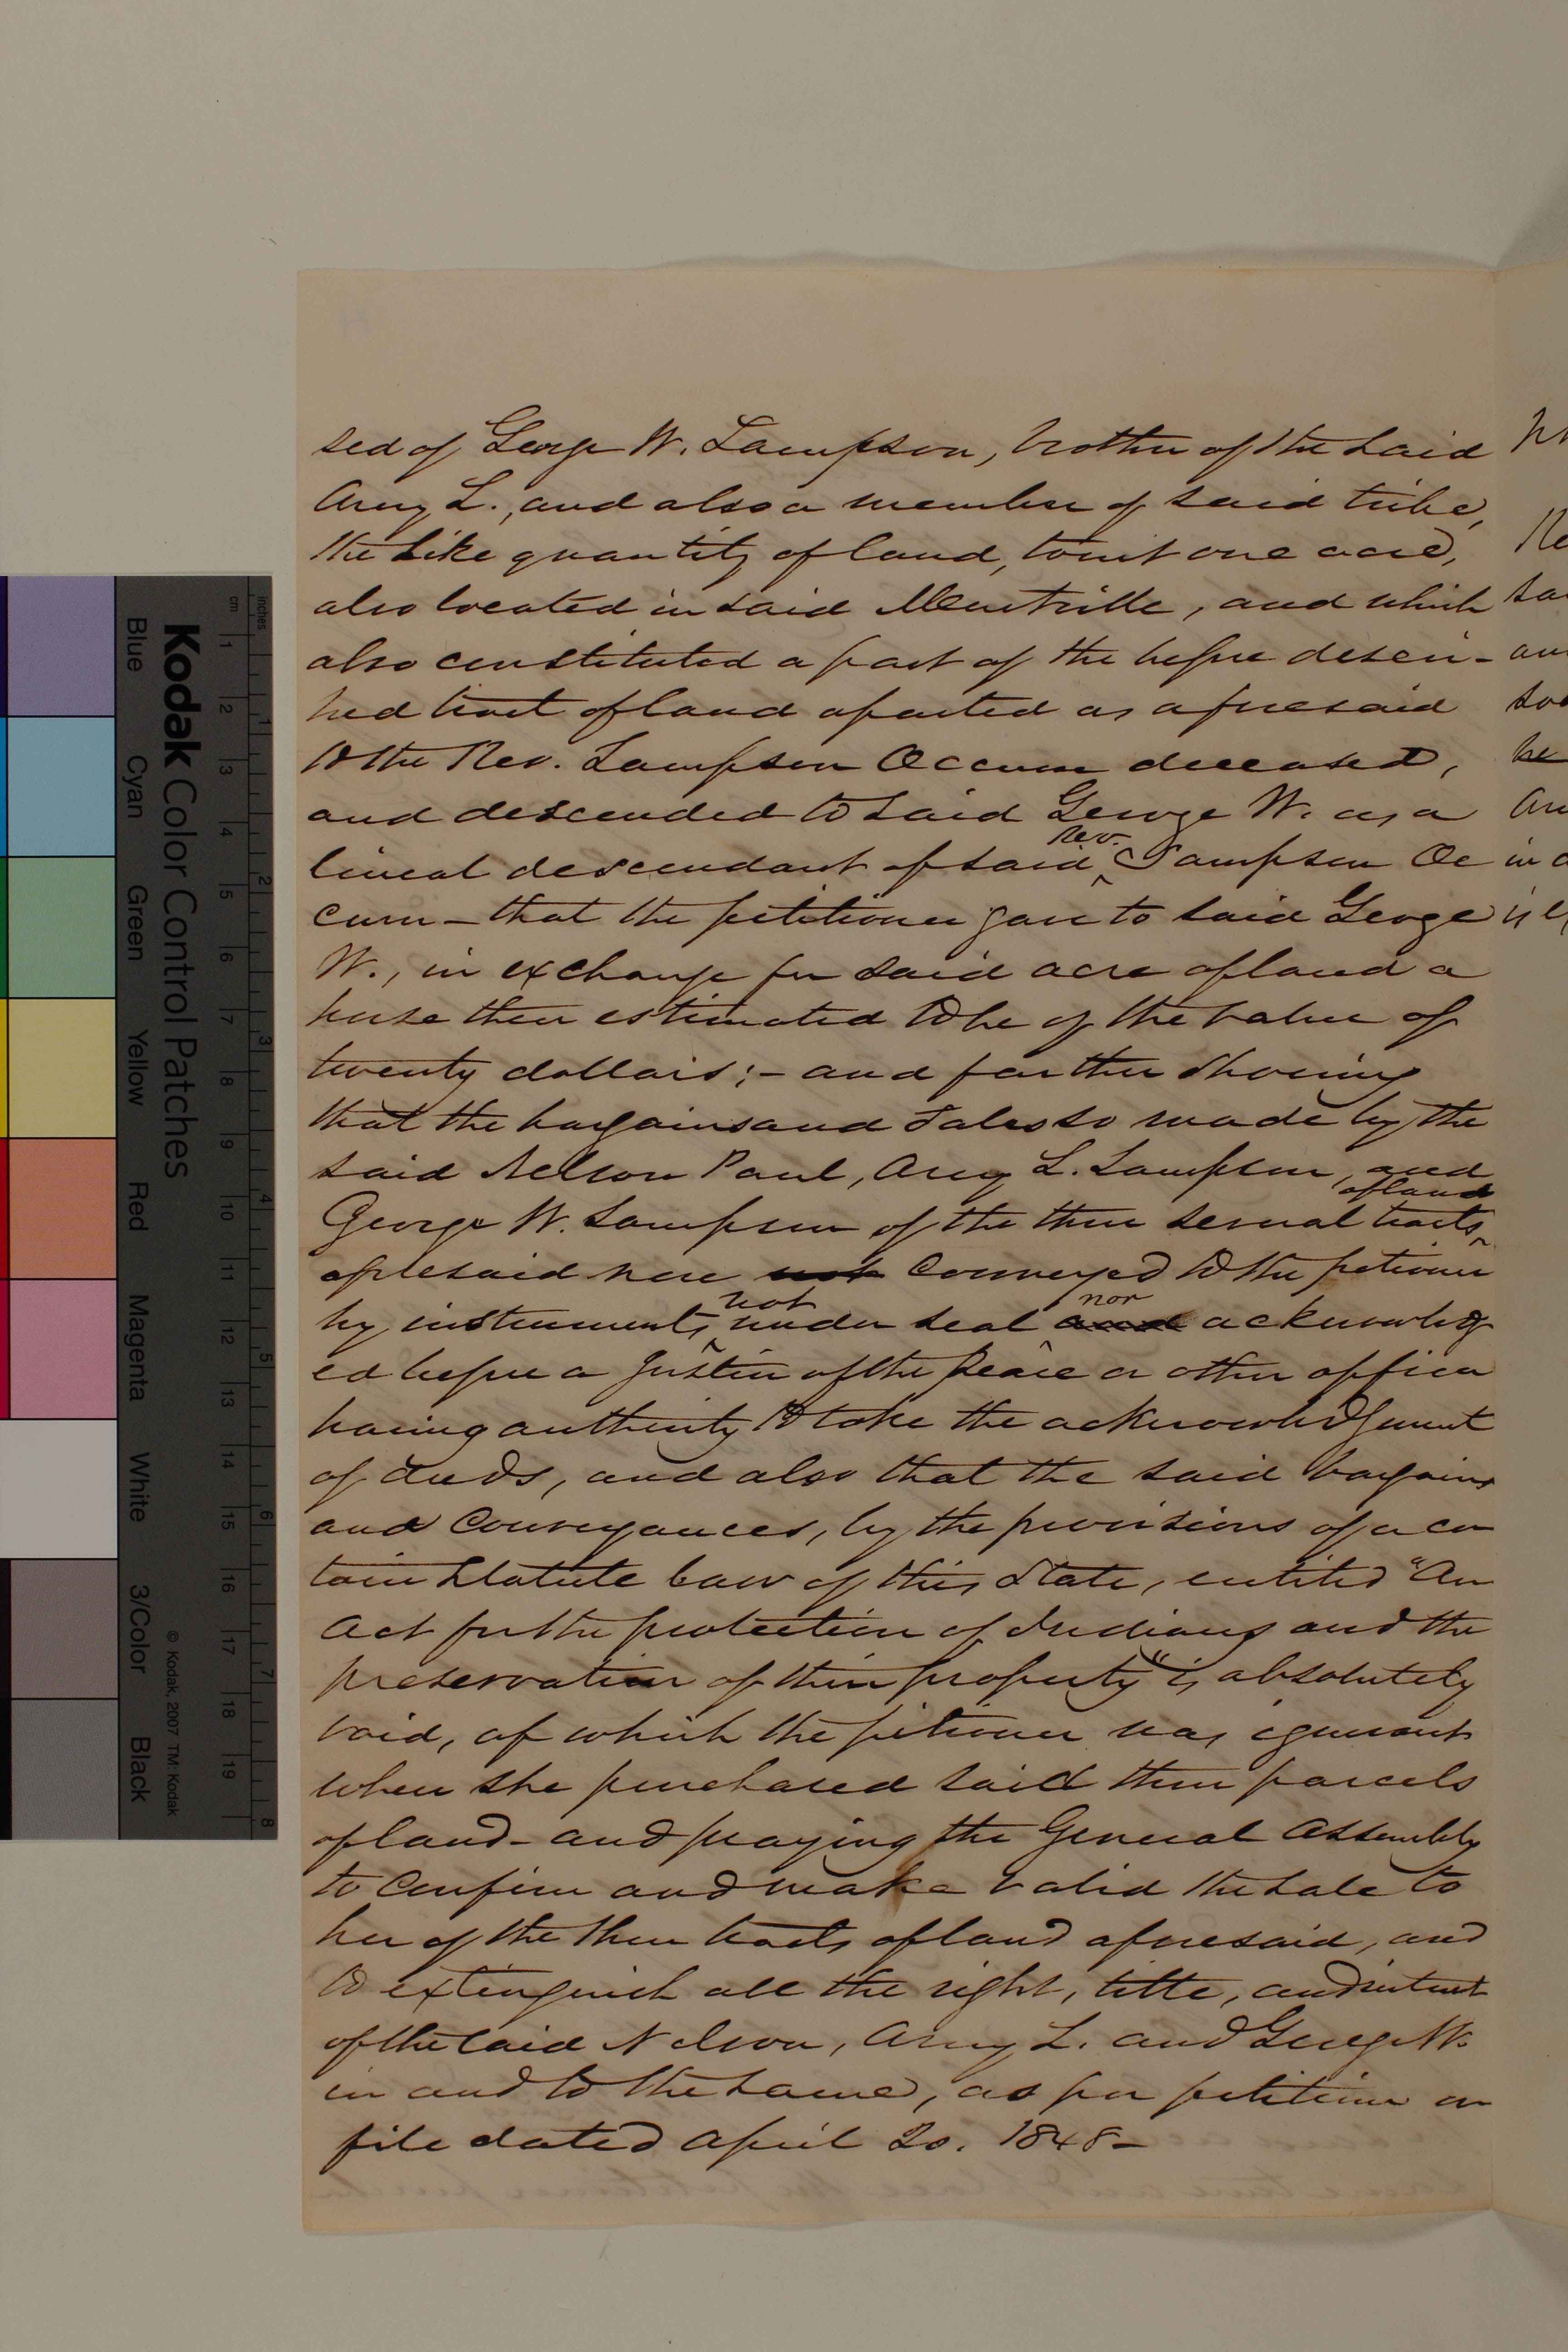 sed of George W. Sampson, brother of the said
Amy L., and also a member of said tribe,
the like quantity of land, towit one acre,
also located in said Montville, and which
also constituted a part of the before descri-
bed tract of land aparted as aforesaid
to the Rev. Sampson Occum deceased,
and descended to said George W. as a
lineal descendant of said ^Rev. Sampson Oc
cum – that the petitioner gave to said George
W., in exchange for said acre of land a
horse then estimated to be of the value of
twenty dollars; – and further showing
that the bargains and sales so made by the
said Nelson Paul, Amy L. Sampson, and
George W. Sampson of the three several tracts ^of land
aforesaid were not conveyed to the petioner
by instruments, ^not under seal and nor acknowledg
ed before a Justice of the Peace or other officer
having authority to take the acknowledgment
of deeds, and also that the said bargains
and conveyances, by the provisions of a cer
tain Statute law of this State, entitled "An
Act for the protection of Indians and the
preservation of their property" is absolutely
void, of which the petioner was ignorant
when she purchased said three parcels
of land – and praying the General Assembly
to confirm and make valid the sale to
her of the three tracts of land aforesaid, and
to extinguish all the right, title, and interest
of the said Nelson, Amy L. and George W.
in and to the same, as per petition on
file dated April 20. 1848 –
inches
cm
1 2 3 4 5 6 7 8 9 10 11 12 13 14 15 16 17 18 19
1 2 3 4 5 6 7 8
Kodak Color Control Patches
© Kodak, 2007 TM: Kodak
Blue Cyan Green Yellow Red Magenta White 3/Color Black